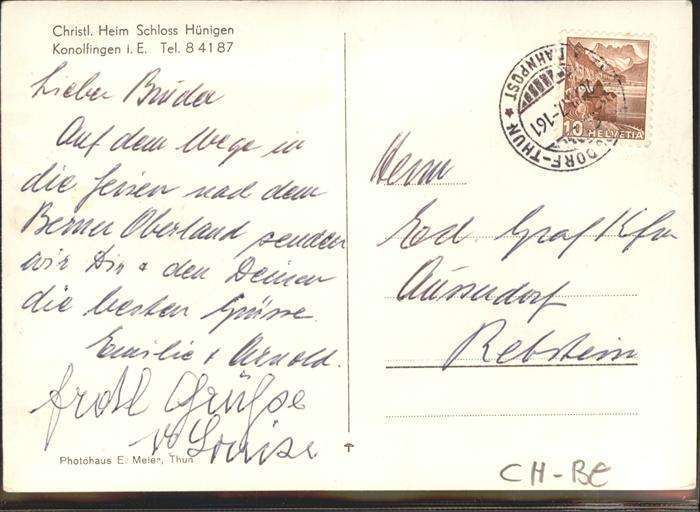 Christl. Heim Schloss Hünigen
Konolfingen i. E. Tel. 8 41 87
Lieber Bruder
Auf dem Wege in
die Ferien nach dem
Berner Oberland senden
wir Dir & den Deinen
die besten Grüsse.
Emilie & Arnold.
Grüsse
v. Louise
Photohaus E. Meier, Thun
10 HELVETIA
DORF-THUN
BAHNPOST
Herrn
Ed. Graf Kfm
Aüsserdorf
Rebstein
CH-BE